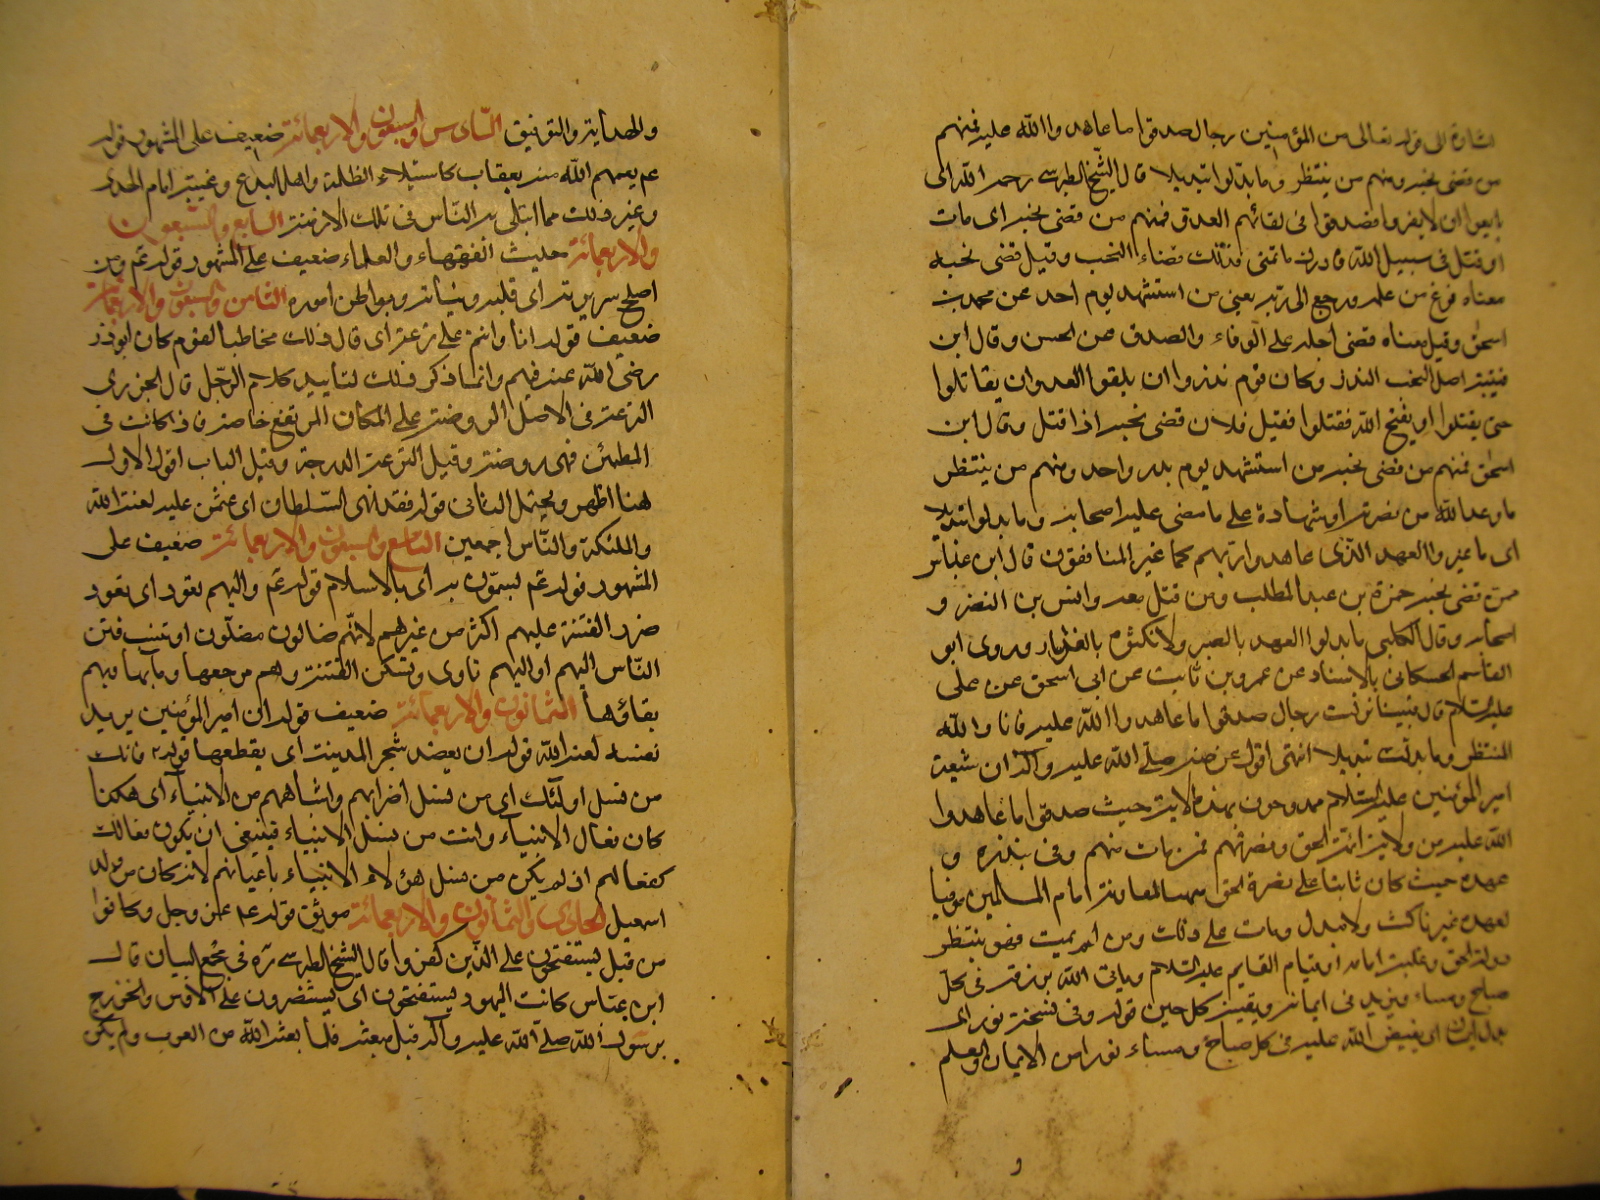 اشارة الى قوله تعالى من المؤمنين رجال صدقوا ما عاهدوا الله عليه فمنهم
من قضى نحبه ومنهم من ينتظر وما بدلوا تبديلا قال الشيخ الطبرسي رحمه الله اى
بايعوا ان لا يفروا فصدقوا فى لقائهم العدو فمنهم من قضى نحبه اى مات
او قتل فى سبيل الله فادرك ما تمنى فذلك قضاء النحب وقيل قضى نحبه
معناه فرغ من عمله ورجع الى ربه يعنى من استشهد يوم احد عن محمد بن
اسحق وقيل معناه قضى اجله على الوفاء والصدق عن الحسن وقال ابن
قتيبة اصل النحب النذر وكان قوم نذروا ان يلقوا العدو ان يقاتلوا
حتى يقتلوا او يفتح الله فقتلوا فقيل فلان قضى نحبه اذا قتل وقال ابن
اسحق فمنهم من قضى نحبه من استشهد يوم بدر واحد ومنهم من ينتظر
ما وعد الله من نصرته او شهادة على ما مضى عليه اصحابه وما بدلوا تبديلا
اى ما غيروا العهد الذى عاهدوا ربهم كما غير المنافقون قال ابن عباس
من قضى نحبه حمزة بن عبد المطلب ومن قتل معه وانس بن النضر و
اصحابه وقال الكلبى ما بدلوا العهد بالصبر ولا نكثوه بالفرار وروى ابو
القاسم الحسكانى بالاسناد عن عمرو بن ثابت عن ابى اسحق عن على
عليه السلام قال فينا نزلت رجال صدقوا ما عاهدوا الله عليه فانا والله
المنتظر وما بدلت تبديلا انتهى اقول غرضه صلى الله عليه وآله ان شيعة
امير المؤمنين عليه السلام ممدوحون بهذه الآية حيث صدقوا ما عاهدوا
الله عليه من ولاية ائمة الحق ونصرتهم فمن مات منهم وفى بنذره و
عهده حيث كان ثابتا على نصرة الحق لمعاونة امام المسلمين موفيا
لعهده غير ناكث ولا مبدل ومات على ذلك ومن لم يمت فهو ينتظر
دولة الحق وغلبة امامه او قيام القايم عليه السلام وياتى الله برزقه فى كل
صباح ومساء ويزيد فى ايمانه ويقينه كل حين قوله وفى نسخة نور اى
بدل اى يفيض الله عليه فى كل صباح ومساء نورا من الايمان والعلم
والهداية والتوفيق السادس والسبعون والاربعمائة ضعيف على المشهور قوله
عم يعمهم الله منه بعقاب كاستيلاء الظلمة واهل البدع وغيبة امام الهدى
وغير ذلك مما ابتلى به الناس فى تلك الازمنة السابع والسبعون
والاربعمائة حديث الفقهاء والعلماء ضعيف على المشهور قوله عم ومن
اصلح سريرته اى قلبه ونياته وبواطن اموره الثامن والسبعون والاربعمائة
ضعيف قوله انا وانتم على ترعة اى قال ذلك مخاطبا لقوم كان ابو ذر
رضى الله عنه فيهم وانما ذكر ذلك لتاييد كلام الرجل قال الجزرى
الترعة فى الاصل الروضة على المكان المرتفع خاصة فاذا كانت فى
المطمئن فهى روضة وقيل الترعة الدرجة وقيل الباب اقول الاول
هنا اظهر ويحتمل الثانى قوله فقد نهى السلطان اى عثمن عليه لعنة الله
والملئكة والناس اجمعين التاسع والسبعون والاربعمائة ضعيف على
المشهور قوله عم يسمون به اى بالاسلام قوله عم واليهم تعود اى يعود
ضرر الفتنة عليهم اكثر من غيرهم لانهم ضالون مضلون او تنسب فتن
الناس اليهم او اليهم تاوى وتسكن الفتنة وهم مرجعها وما بها فيهم
بقاؤها الثمانون والاربعمائة ضعيف قوله ان امير المؤمنين يريد
نفسه لعنه الله قوله ان يعضد شجر المدينة اى يقطعها قوله فانك
من نسل اولئك اى من نسل اضرابهم واشباههم من الانبياء اى هكذا
كان فعال الانبياء وانت من نسل الانبياء فينبغى ان يكون فعالك
كفعالهم اذ لم يكن من نسل هؤلاء الانبياء باعيانهم لانه كان من ولد
اسمعيل الحادى والثمانون والاربعمائة موثق قوله عم عز وجل وكانوا
من قبل يستفتحون على الذين كفروا قال الشيخ الطبرسي ره فى مجمع البيان قال
ابن عباس كانت اليهود يستفتحون اى يستنصرون على الاوس والخزرج
برسول الله صلى الله عليه وآله قبل مبعثه فلما بعثه الله من العرب ولم يكن